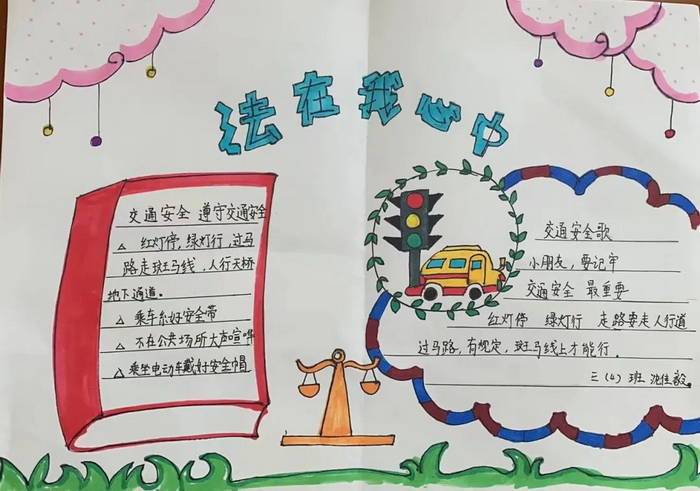 法在我心中
交通安全 遵守交通安全
△ 红灯停,绿灯行,过马
路走斑马线,人行天桥
地下通道。
△ 乘车系好安全带
△ 不在公共场所大声喧哗
△ 乘坐电动车戴好安全帽
交通安全歌
小朋友,要记牢
交通安全 最重要
红灯停 绿灯行 走路要走人行道
过马路,有规定,斑马线上才能行。
三(4)班 沈佳毅